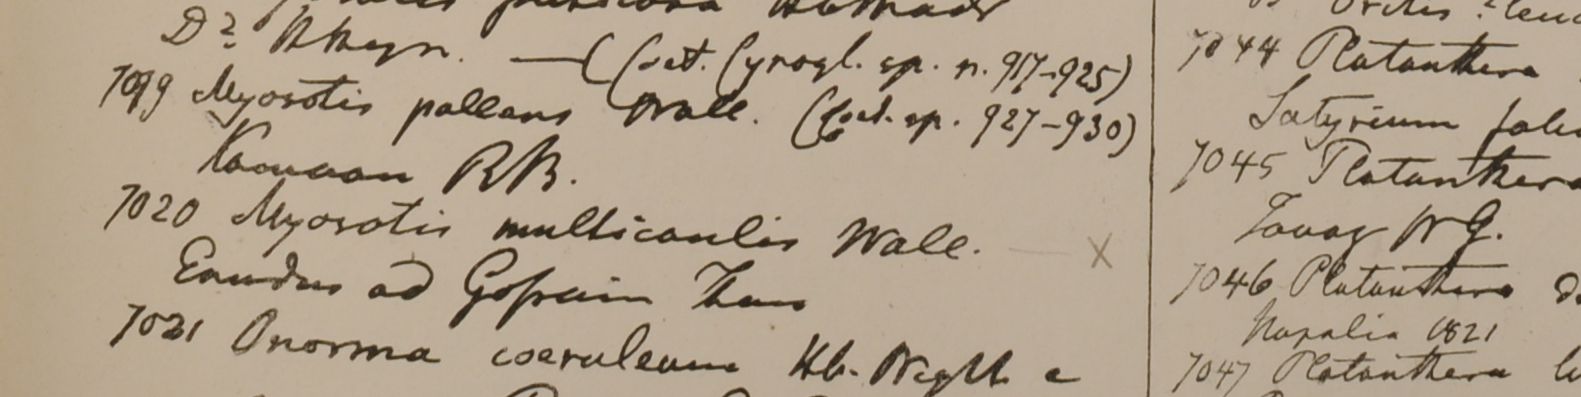 Do? B. Heyn. — (Cat. Cynogl. sp. n. 917-925)
7019 Myosotis pallens Wall. (Cat. sp. 927-930)
Kamaon RB.
7020 Myosotis multicaulis Wall. — X
Emodus ad Gossain Than
7021 Onosma coeruleum Hb. Wight. e
7044 Platanthera
Satyrium
7045 Platanthera
Tavoy WG.
7046 Platanthera
Napalia 1821
7047 Platanthera